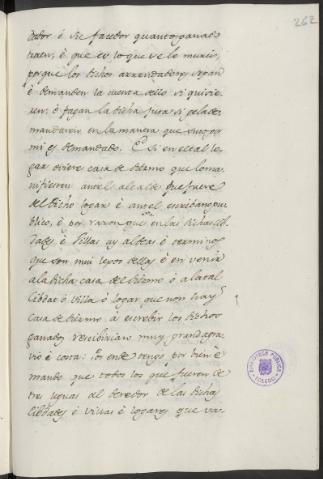 262
dador è vie facedor quanto ganado
traen, è que es lo que se le murio,
porque los dichos arrendadores sepan
è demanden la cuenta dello si quisie
ren, è fagan la dicha jura si gela de-
mandaren en la manera que suso por
mi es demandado. E si en el tal lo
gar oviere casa de diezmo que lo ma-
nifiesten antel alcalde que fuere
del dicho logar è antel escribano pu
blico, è por razon que en las dichas cib
dades è Villas ay aldeas è terminos
que son mui lejos dellas è en venir
a la dicha casa del diezmo ò a la tal
Cibdad ò Villa ò logar que non hay
Casa de diezmo à escrebir los dichos
ganados recibirian muy grand agra-
vio è costa: Por ende tengo por bien è
mando que todos los que fueren de
tres leguas al derredor de las dichas
Cibdades ò Villas ò logares que va-
BIBLIOTECA PUBLICA
TOLEDO